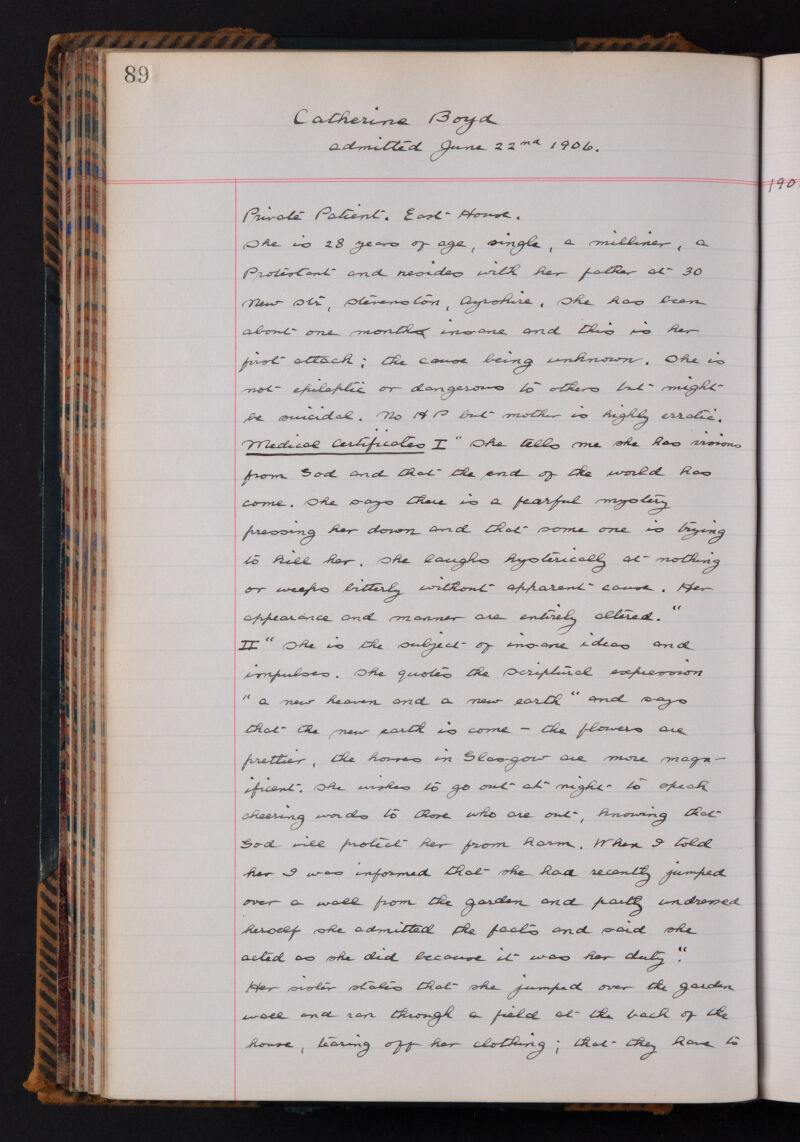 89
Catherine Boyd
admitted June 22nd 1906.
190
Private Patient. East House.
She is 28 years of age, single, a milliner, a
Protestant and resides with her father at 30
New Str, Stevenston, Ayrshire. She has been
about one month insane and this is her
first attack; the cause being unknown. She is
not epileptic or dangerous to others but might
be suicidal. No H P but mother is highly erratic.
Medical Certificates I "She tells me she has visions
from God and that the end of the world has
come. She says there is a fearful mystery
pressing her down and that some one is trying
to kill her. She laughs hysterically at nothing
or weeps bitterly without apparent cause. Her
appearance and manner are entirely altered."
II "She is the subject of insane ideas and
impulses. She quotes the scriptural expression
"a new heaven and a new earth" and says
that the new earth is come - the flowers are
prettier, the houses in Glasgow are more magn-
ificent. She wishes to go out at night to speak
cheering words to those who are out, knowing that
God will protect her from harm. When I told
her I was informed that she had recently jumped
over a wall from the garden and partly undressed
herself she admitted the facts and said she
acted as she did because it was her duty".
Her sister states that she jumped over the garden
wall and ran through a field at the back of the
house, tearing off her clothing; that they have to